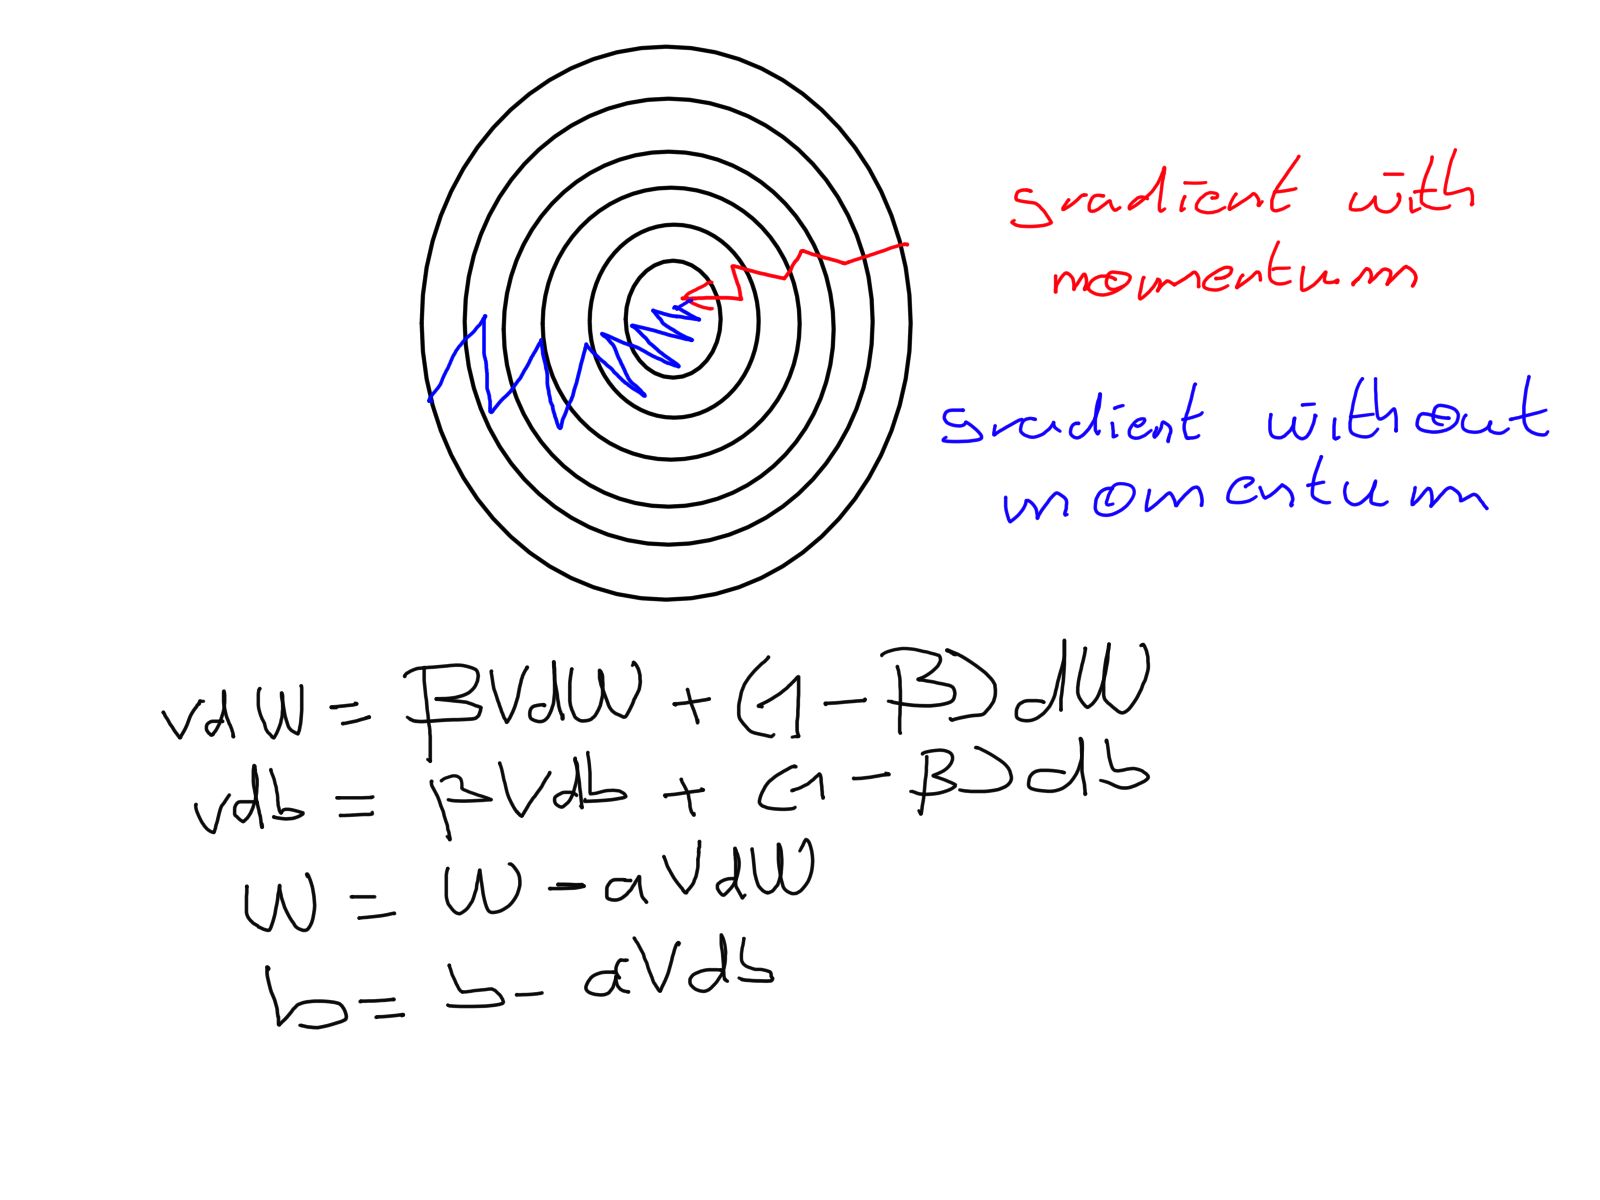 gradient with
momentum
gradient without
momentum
vdW = βVdW + (1-β)dW
vdb = βVdb + (1-β)db
W = W - aVdW
b = b - aVdb